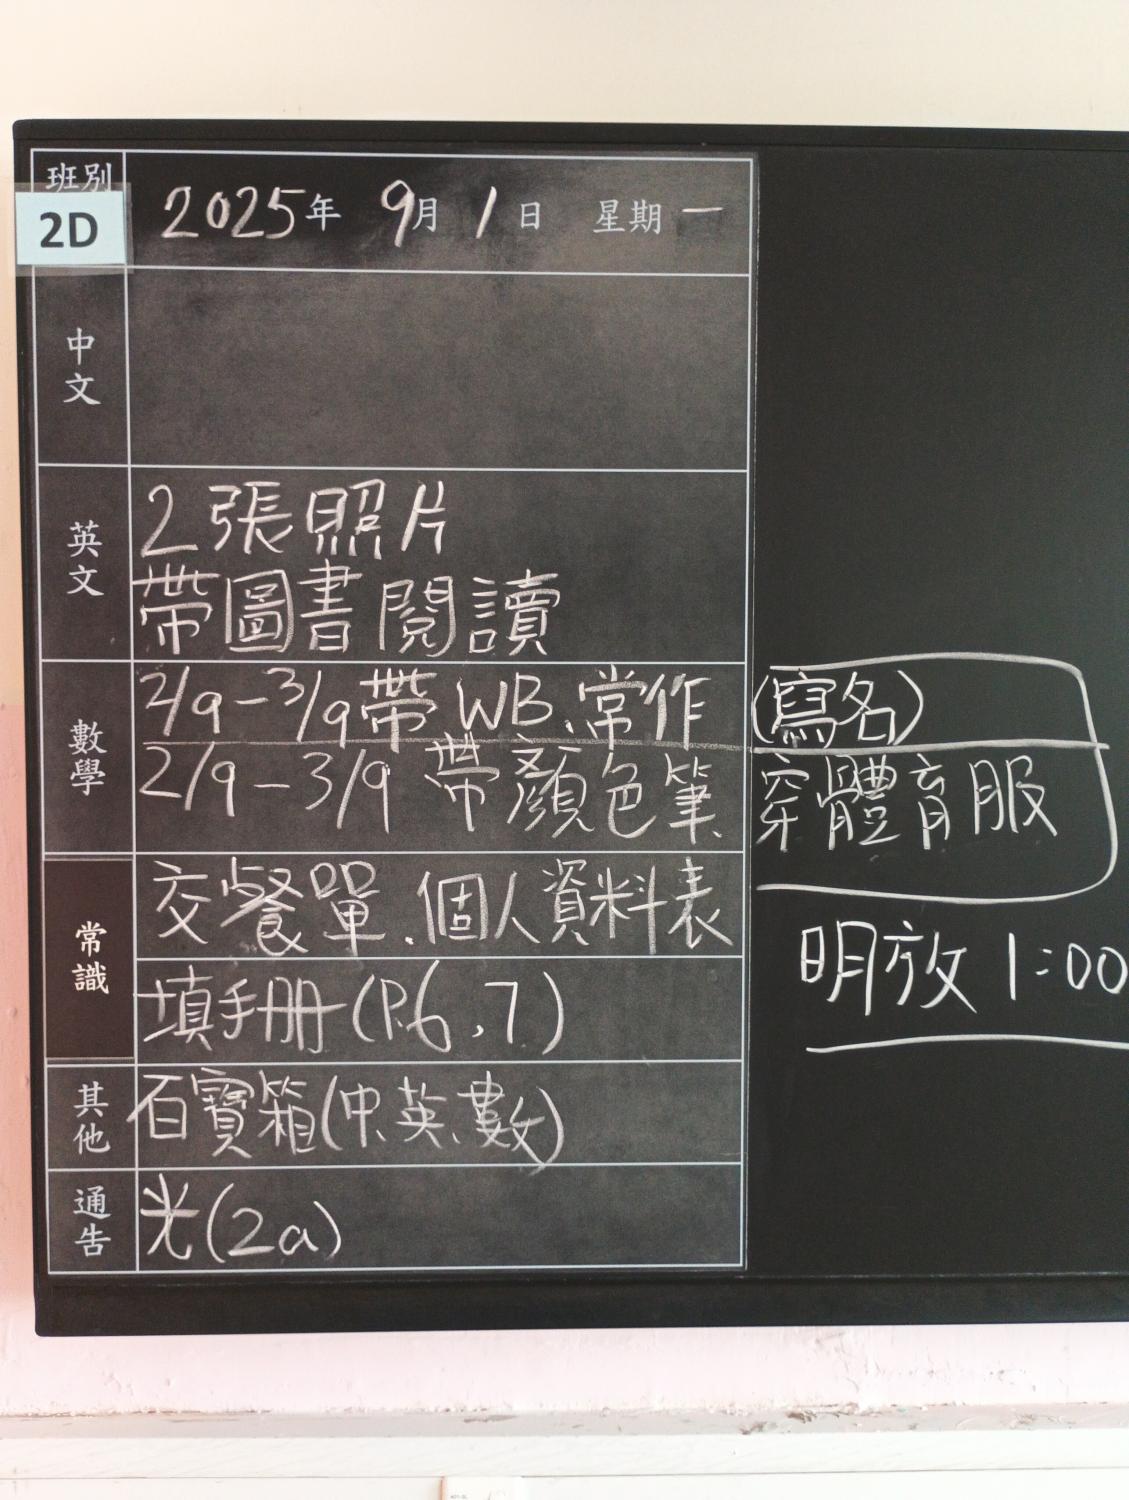 班別
2D
2025年 9月 1日 星期一
中文
英文
2張照片
帶圖書閱讀
數學
2/9-3/9帶WB、常作(寫名)
2/9-3/9帶顏色筆、穿體育服
常識
交餐單、個人資料表
填手冊(P.6,7)
明放1:00
其他
百寶箱(中、英、數)
通告
光(2a)